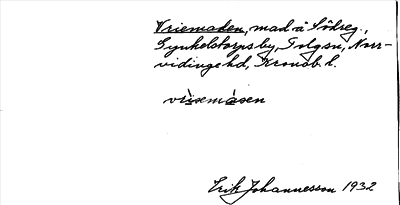 Vriemaden, mad å Södreg.,
Gynkelstorps by, Tolgsn, Norr-
vidinge hd, Kronob. l.
vrìsemåsen
Erik Johannesson 1932